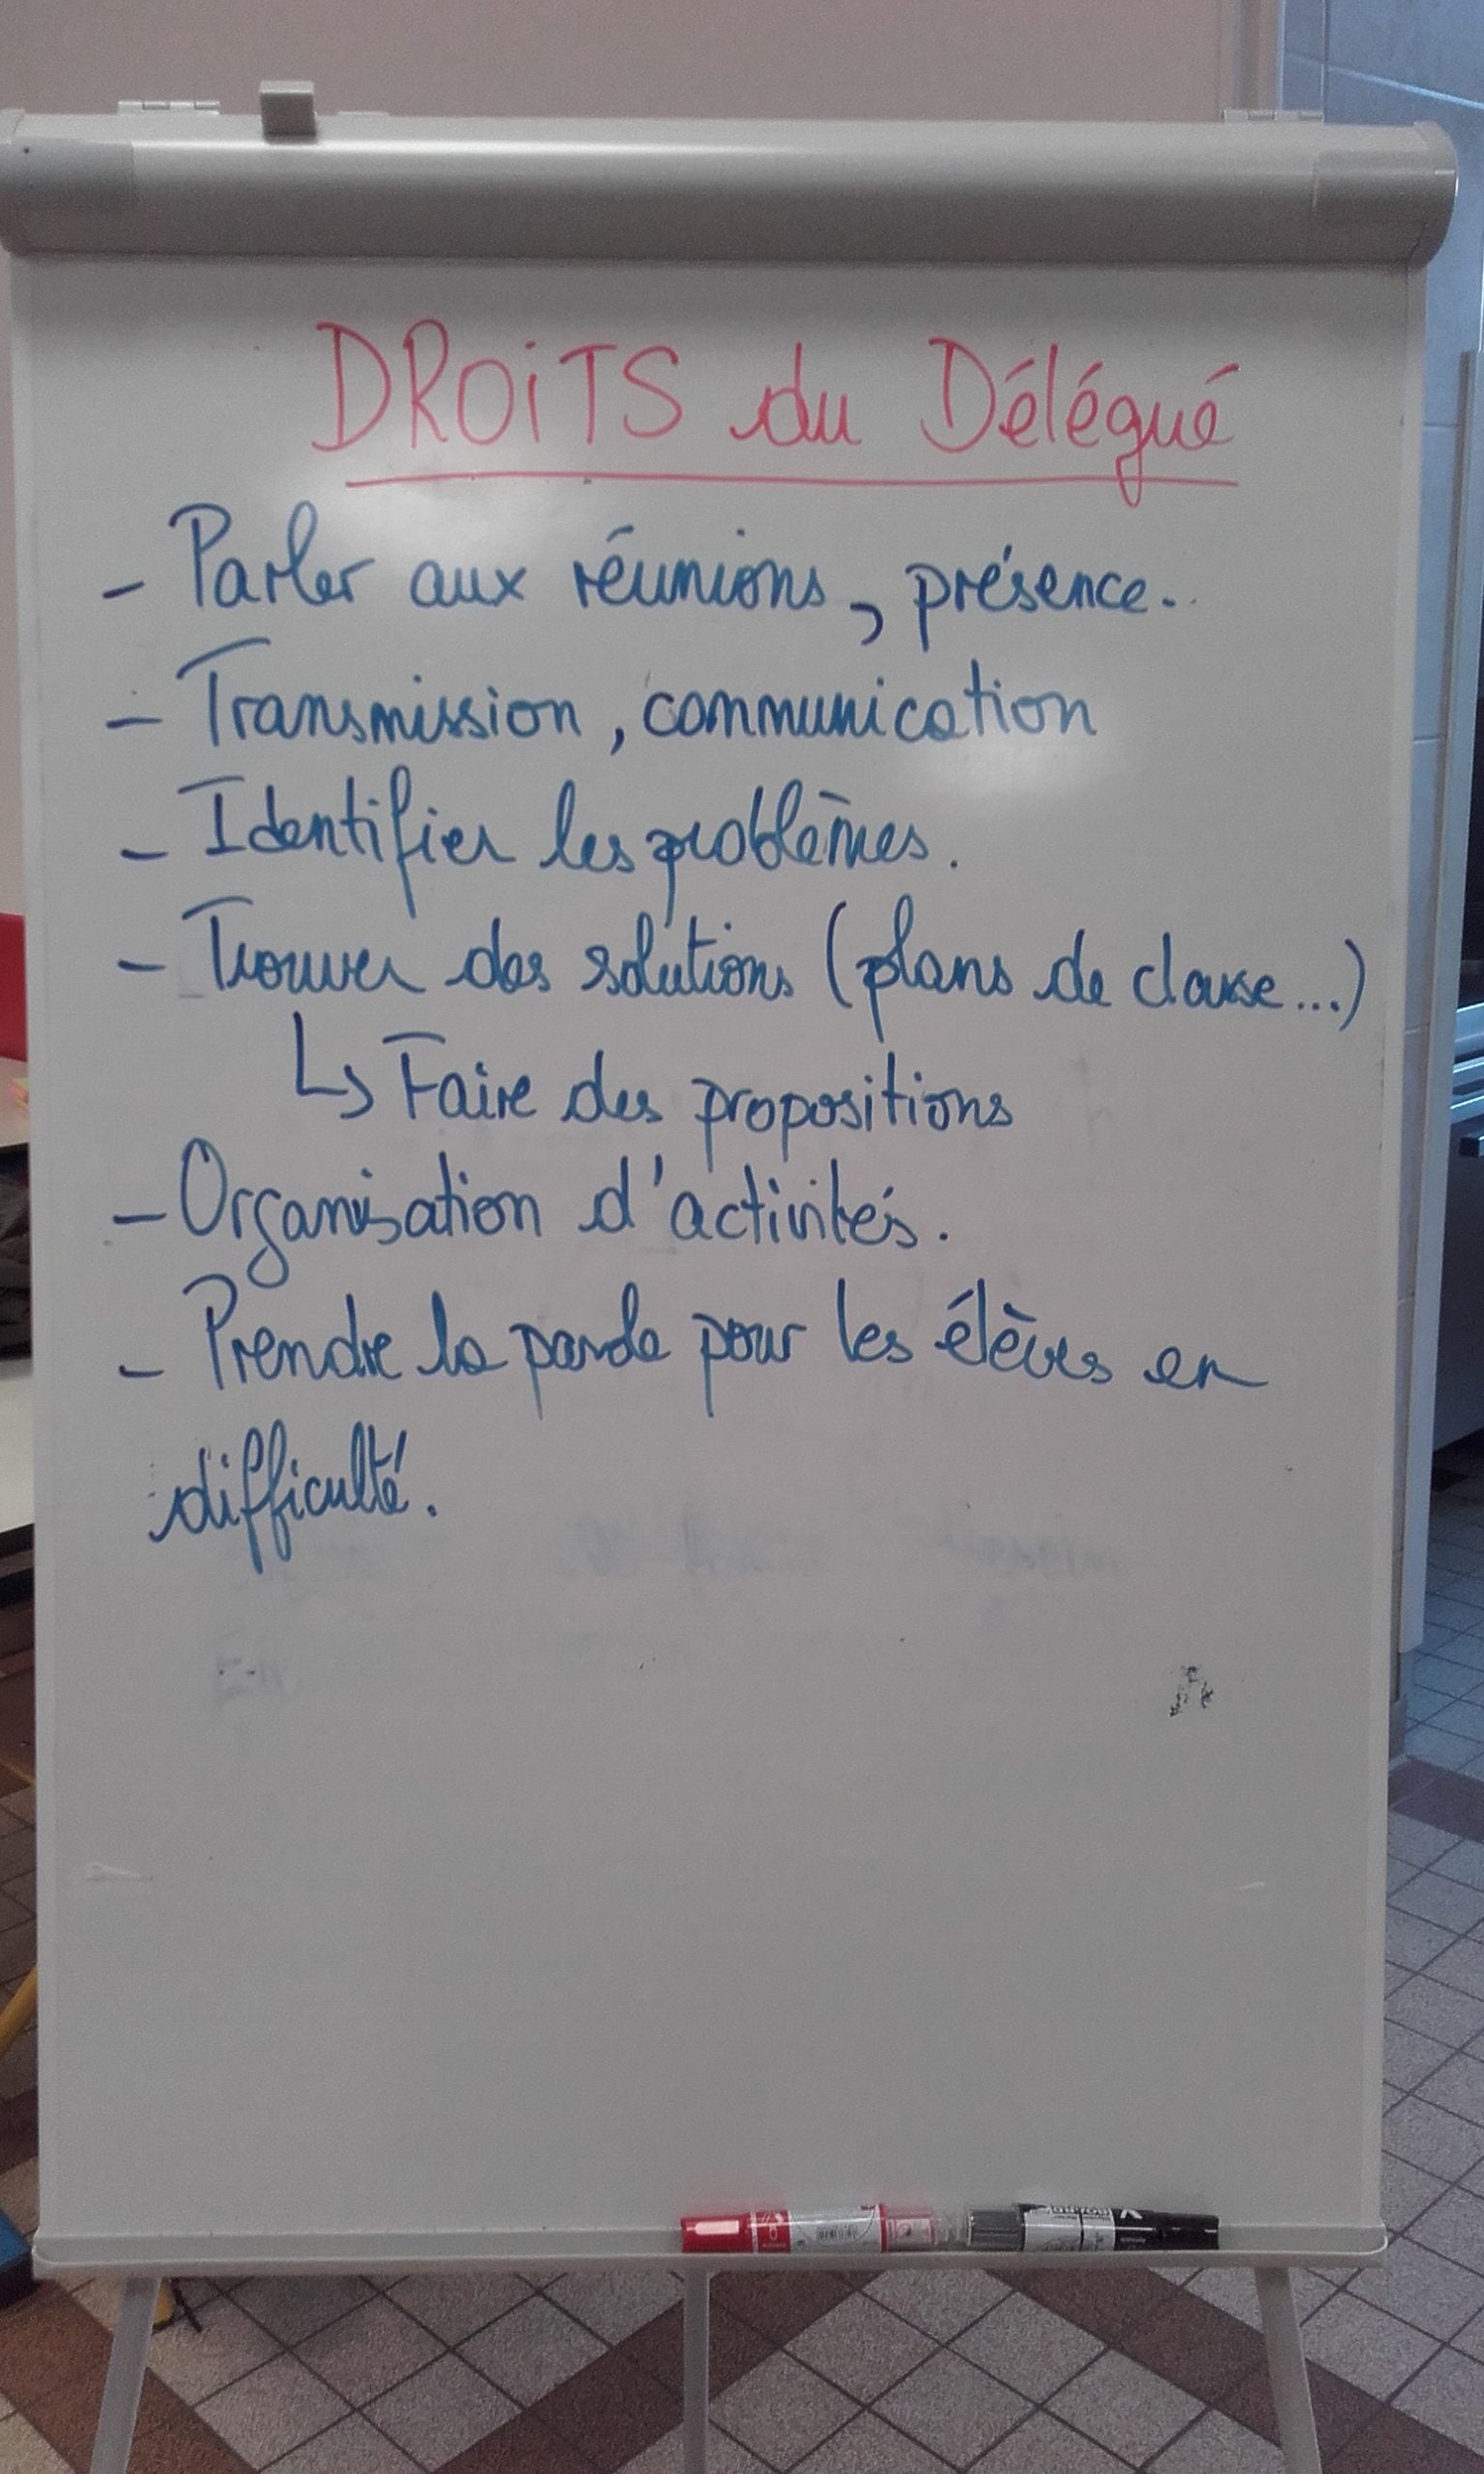 DROiTS du Délégué
- Parler aux réunions, présence..
- Transmission, communication
- Identifier les problèmes.
- Trouver des solutions (plans de classe...)
↳ Faire des propositions
- Organisation d'activités.
- Prendre la parole pour les élèves en
difficulté.